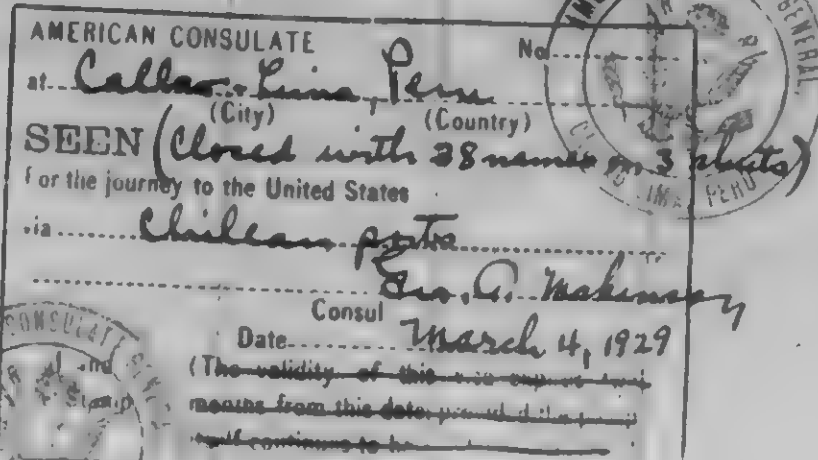 AMERICAN CONSULATE No
at Callao-Lima, Peru
(City) (Country)
SEEN (Closed with 28 names on 3 sheets)
For the journey to the United States
via Chilean ports
Geo. A. Makinson
Consul
Date March 4, 1929
(The validity of this
months from this date
continues to be
CONSULATE
GENERAL
LIMA, PERU